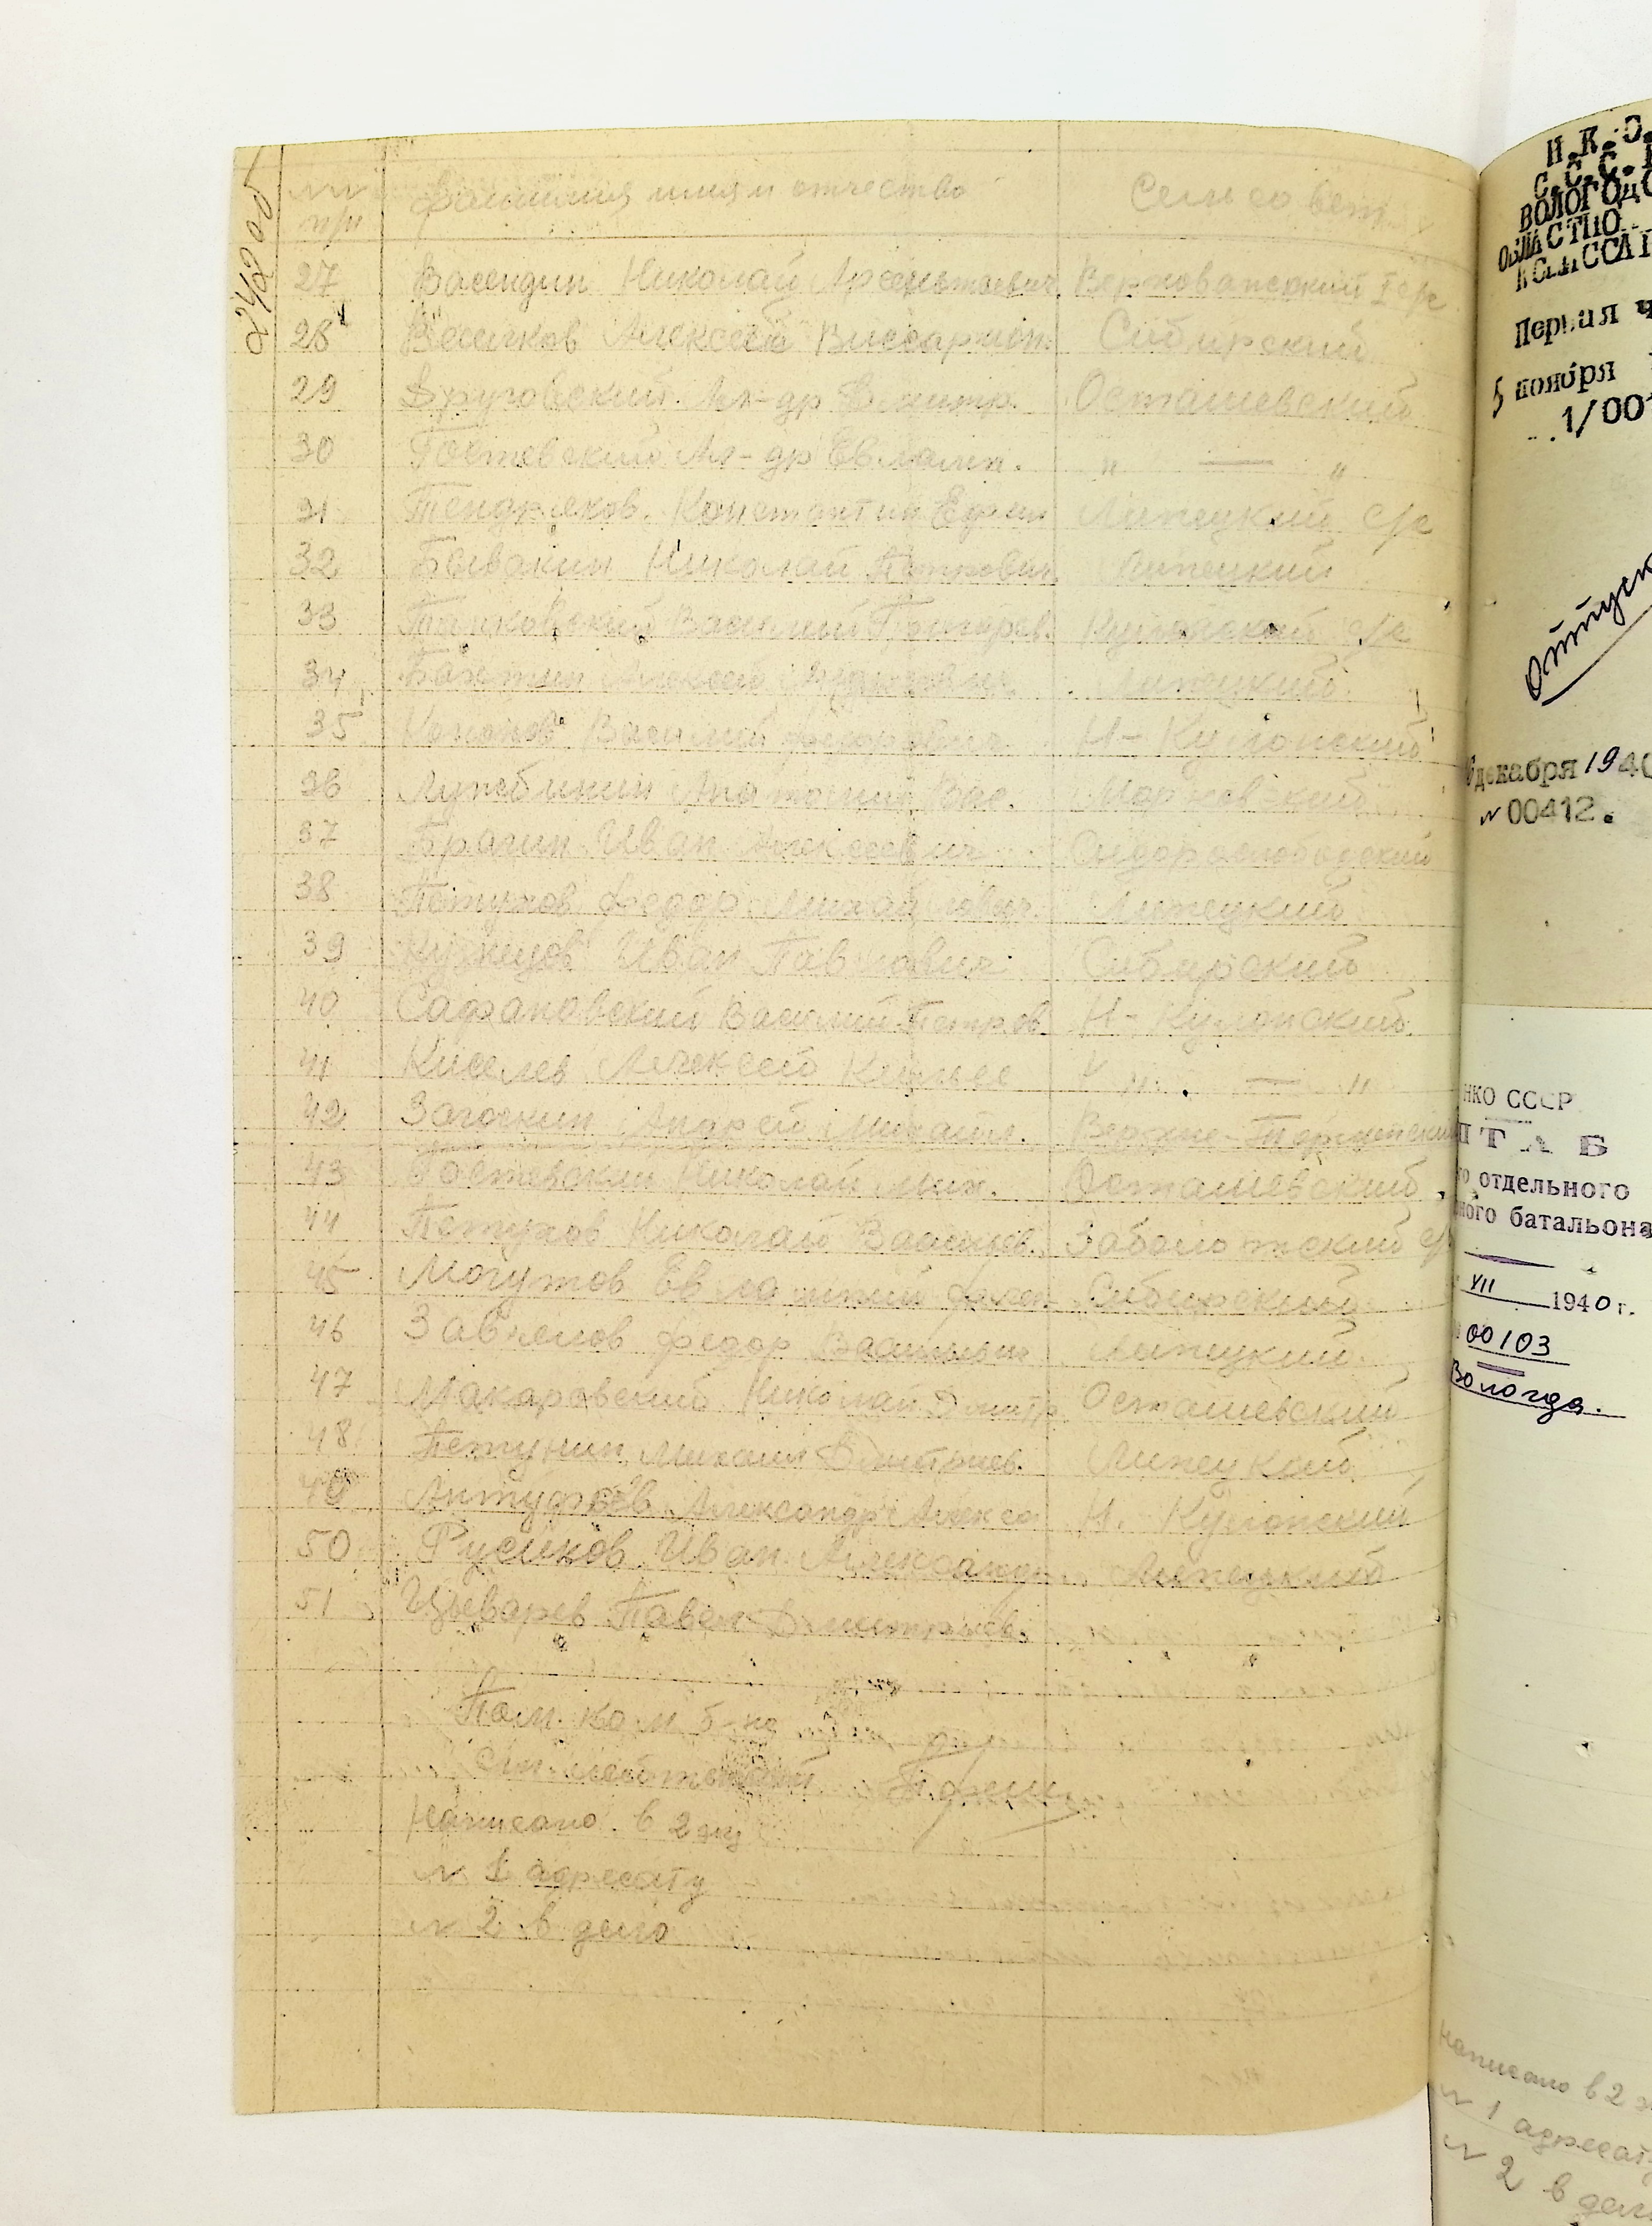 242 об
№№ п/п Фамилия имя и отчество Сельсовет
27 Васендин Николай Арсентьевич Верховажский с/с
28 Алексей Виссарион. Сибирский
29 Друговский Ал-др Дмитр. Осташевский
30 Гостевский Ал-др Евламп. " — "
31 Тендряков Константин Ефим Липецкий с/с
32 Бывакин Николай Петрович Липецкий
33 Василий с/с
34 Алексей Липецкий
35 Кононов Василий Федорович Н-Кулойский
36 Лужбинин Анатолий Вас. Морозовский
37 Брагин Иван Алексеевич Сидорослободский
38 Петухов Федор Михайлович Липецкий
39 Кузнецов Иван Павлович Сибирский
40 Сафоновский Василий Петров Н-Кулойский
41 Киселев Алексей " — "
42 Загоскин Андрей Михайл. Верхне-Терменский
43 Гостевский Николай Мих. Осташевский
44 Петухов Николай Васильев. Заболотский с/с
45 Могутов Евлампий Сибирский
46 Федор Васильевич Липецкий
47 Макаровский Николай Дмитр Осташевский
48 Петунин Михаил Дмитриев. Липецкий
49 Антуфьев Александр Алексе Н. Кулойский
50 Русинов Иван Александр. Липецкий
51 Цыварев Павел Дмитриев.
Пом. ком б-на
Ст. лейтенант
Написано в 2 экз
№ 1 адресату
№ 2 в дело
Н.К.О.
С.С.С.
ВОЛОГОДС
ОБЛАСТНО
КОМИССАР
Первая ч
5 ноября
1/00
Отпуск
декабря 1940
№ 00412.
НКО СССР
ШТАБ
го отдельного
ного батальона
XII 1940 г.
00103
Вологда.
Написано в 2 э
№ 1 адресат
№ 2 в дел